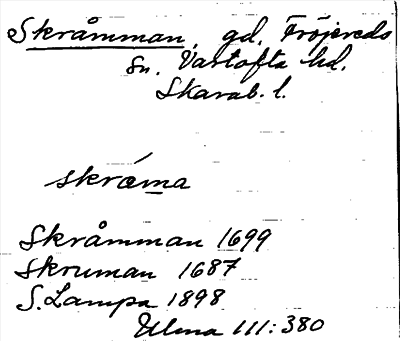 Skråmman, gd. Fröjereds
sn. Vartofta hd.
Skarab. l.
skráma
Skråmman 1699
Skruman 1687
S. Lampa 1898
Ulma 111:380